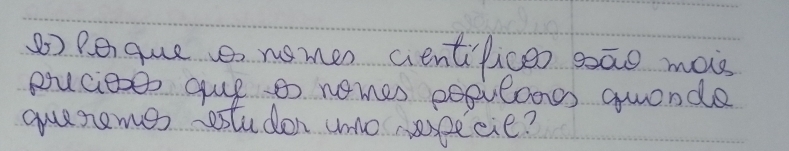 b) Por que os nomes científicos são mais
precisos que os nomes populares quando
queremos estudar uma espécie?